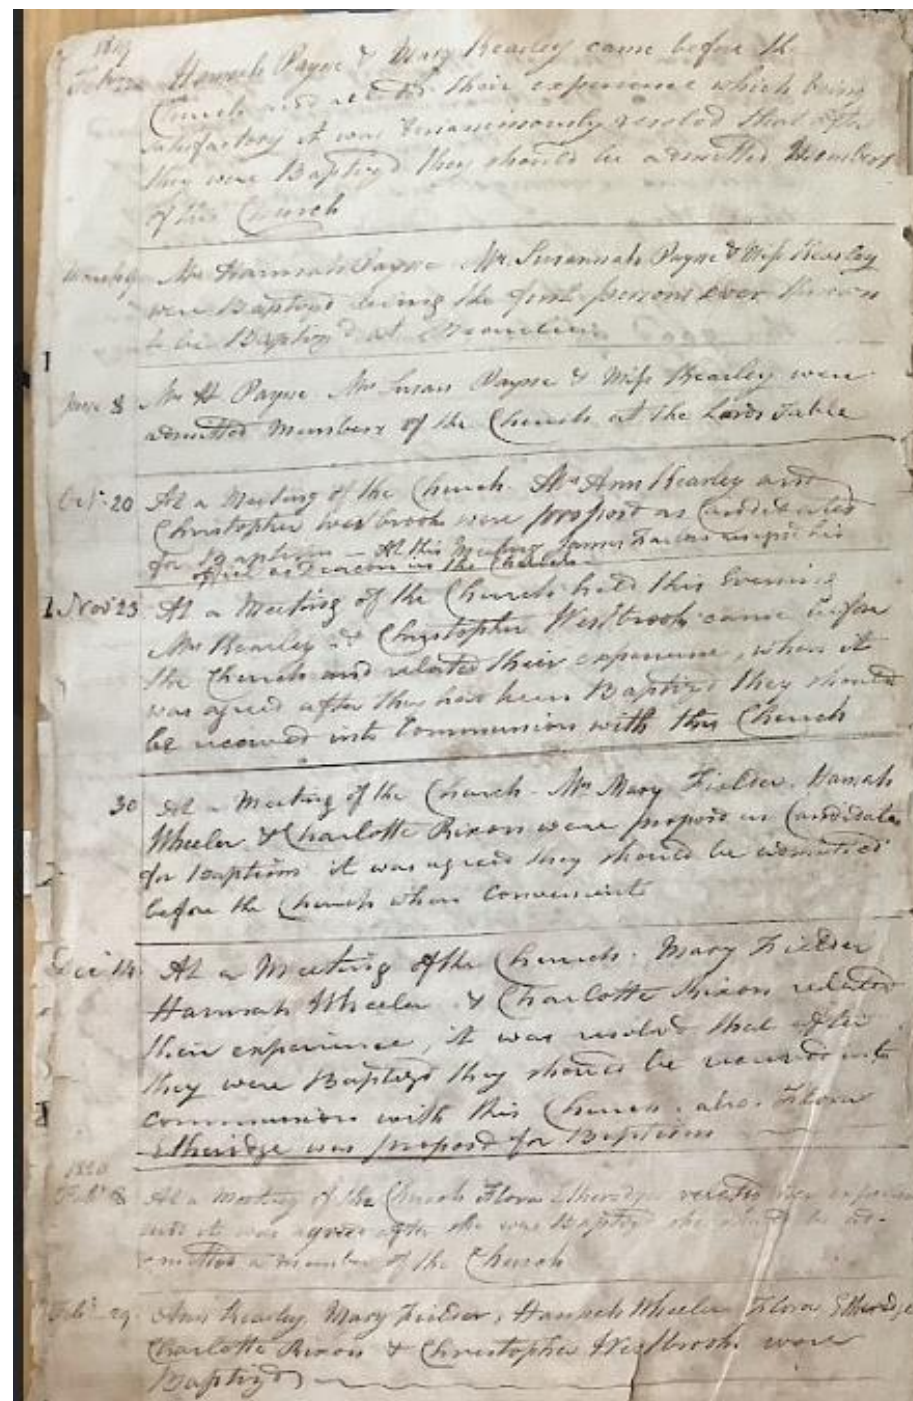 1819
Hannah Payne & Mary Kearley came before the
Church and related their experience which being
satisfactory it was unanimously resolved that after
they were Baptizd they should be admitted Members
of this Church
March Mrs Hannah Payne Mrs Susannah Payne & Miss Kearley
were Baptized being the first persons ever known
to be Baptizd at
June 8 Mrs H Payne Mrs Susan Payne & Miss Kearley were
admitted Members of the Church at the Lords Table
Oct. 20 At a Meeting of the Church. Mrs Ann Kearley and
Christopher Westbrook were propos'd as Candidates
for Baptism — At this Meeting James resign'd his
Office as Deacon in the Church
Nov 23 At a Meeting of the Church held this Evening
Mrs Kearley & Christopher Westbrook came before
the Church and related their experience, when it
was agreed after they had been Baptizd they should
be received into Communion with this Church
30 At a Meeting of the Church - Mrs Mary Fielder. Hannah
Wheeler & Charlotte Rixon were proposd as Candidates
for Baptism it was agreed they should be
before the Church when convenient
Dec 14. At a Meeting of the Church. Mary Fielder
Hannah Wheeler & Charlotte Rixon related
their experience, it was resolvd that after
they were Baptizd they should be received into
communion with this Church. also. Flora
Etheridge was proposd for Baptism
1820
Feb. 8 At a Meeting of the Church Flora Etheredge related her experience
and it was agreed after she was Baptizd she should be ad-
-mitted a member of the Church
Feb. 29. Ann Kearley, Mary Fielder, Hannah Wheeler Flora Etheredge
Charlotte Rixon & Christopher Westbrook were
Baptizd